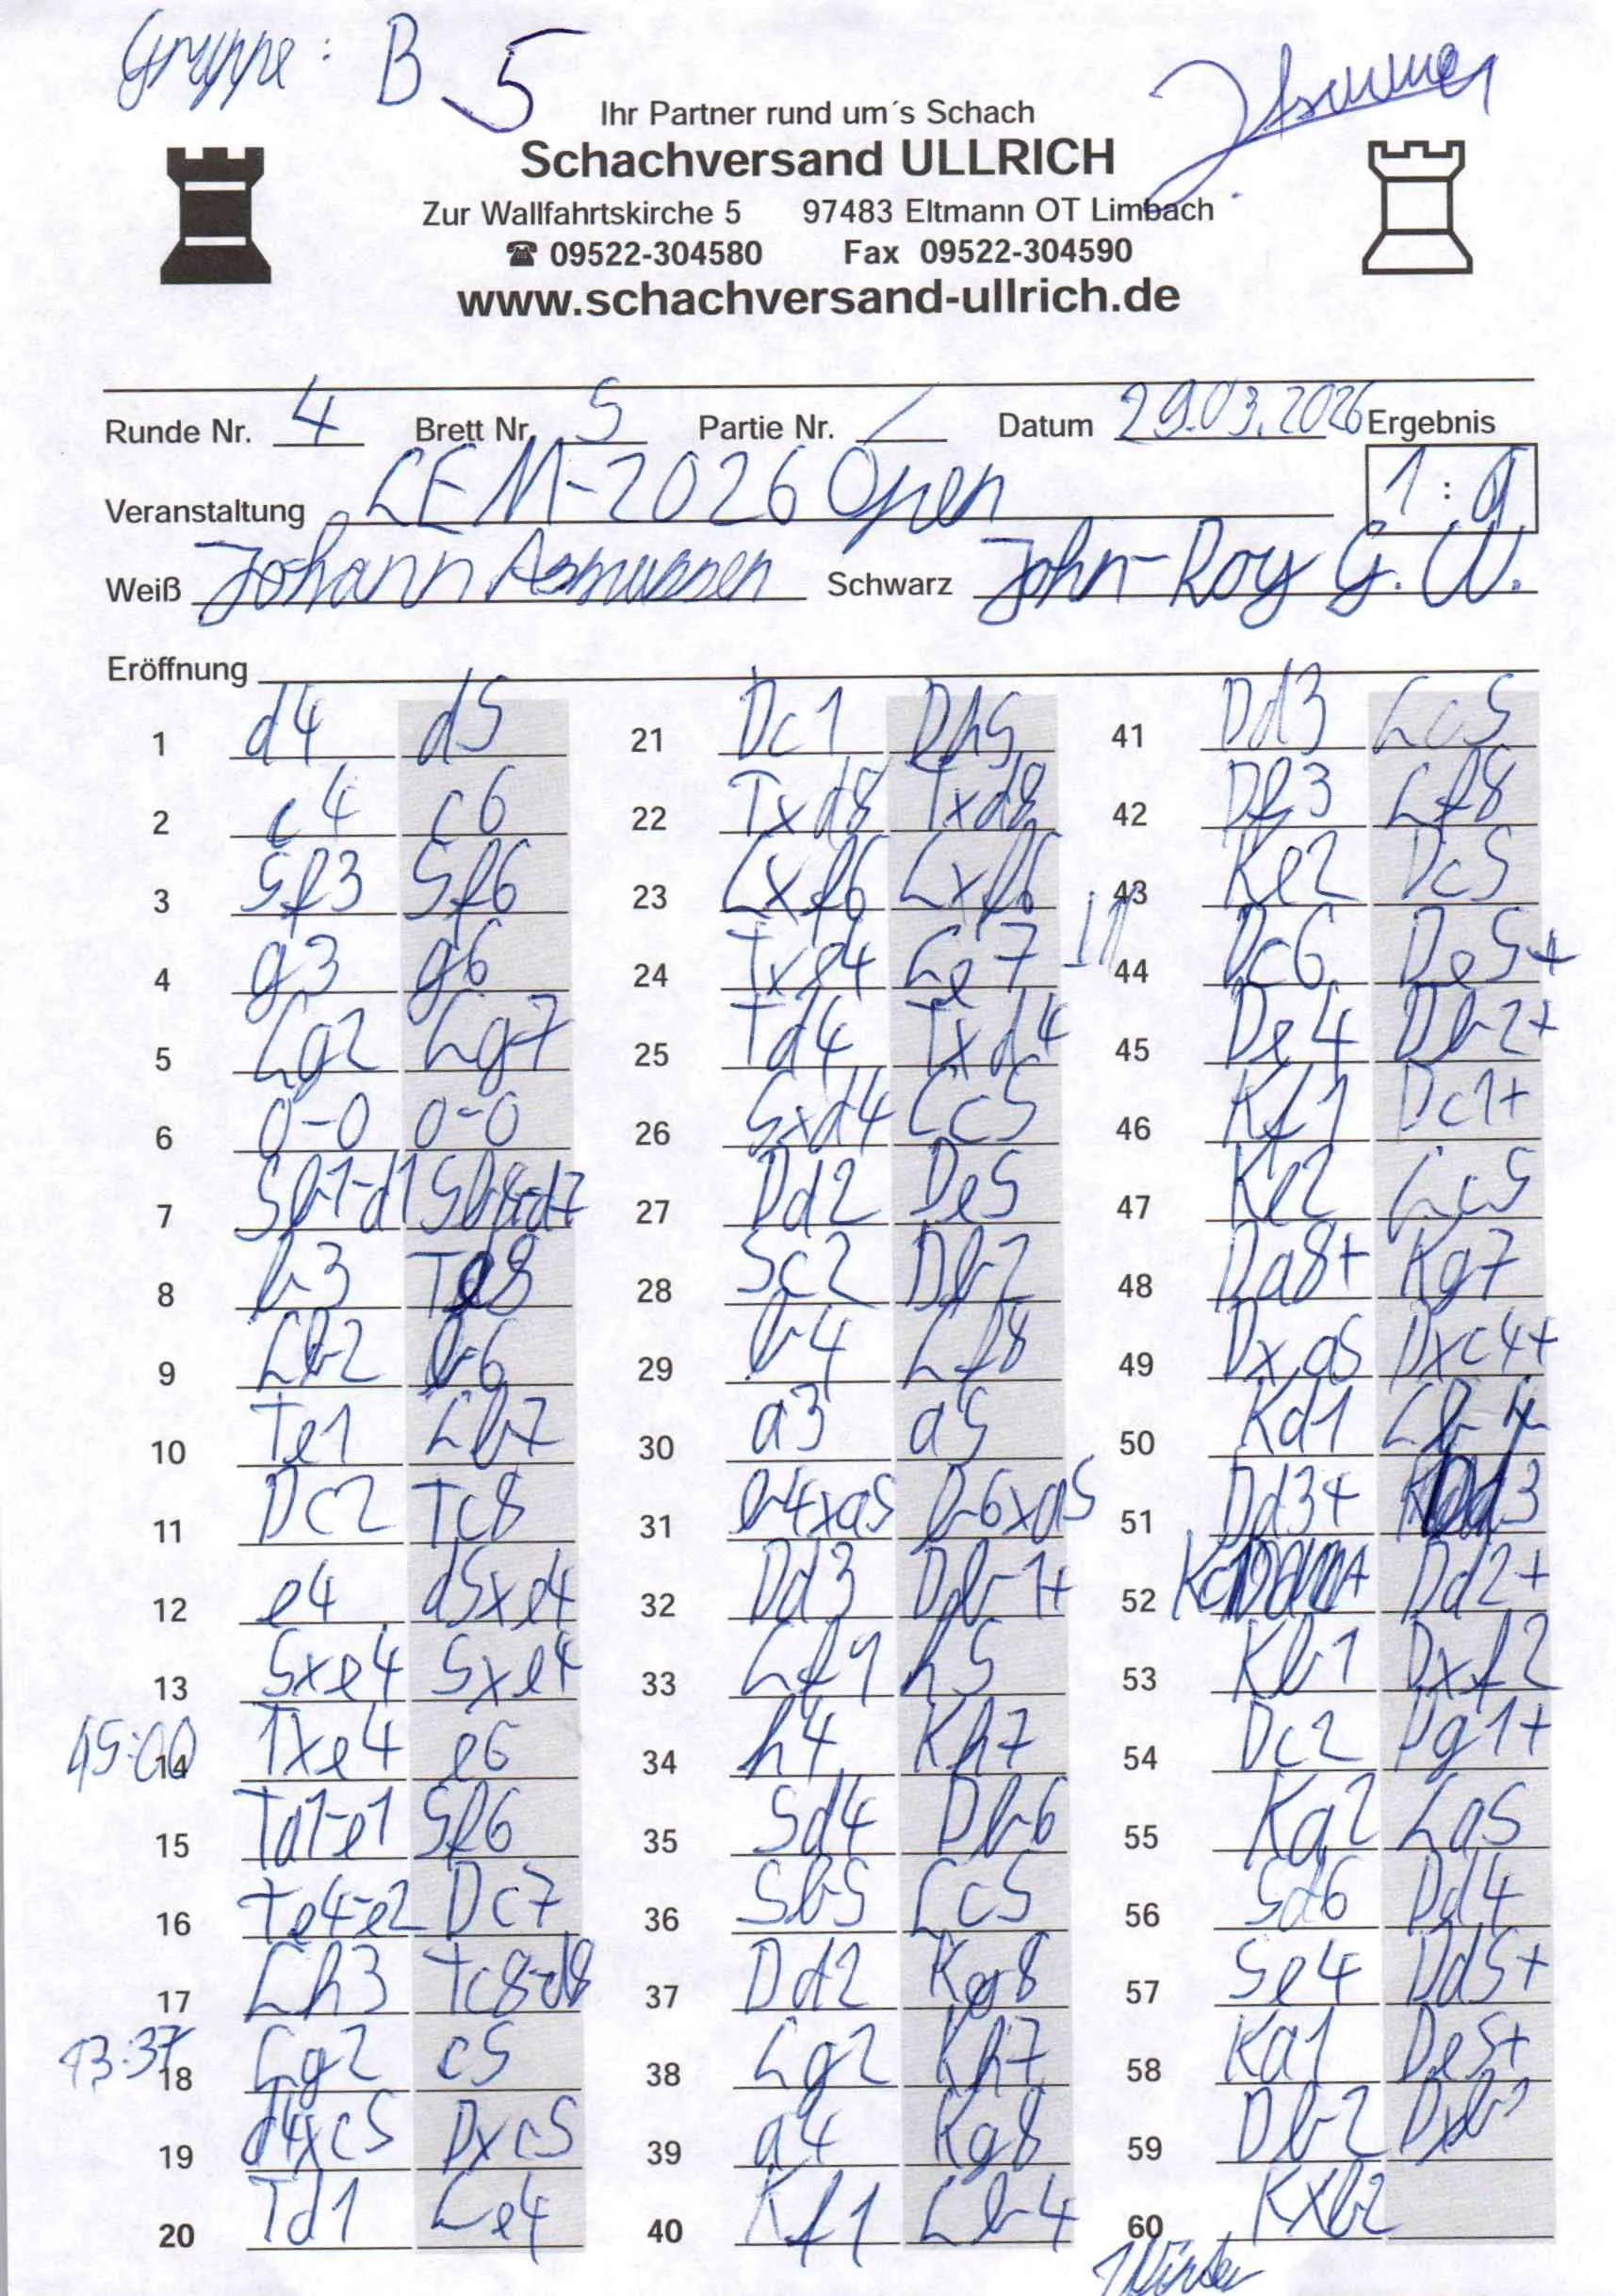 Gruppe: B 5
Ihr Partner rund um´s Schach
Schachversand ULLRICH
Zur Wallfahrtskirche 5 97483 Eltmann OT Limbach
☎ 09522-304580 Fax 09522-304590
www.schachversand-ullrich.de
Runde Nr. 4 Brett Nr. 5 Partie Nr. / Datum 29.03.2026 Ergebnis
Veranstaltung LEM-2026 Open 1 : 0
Weiß Johann Asmussen Schwarz John-Roy G. W.
Eröffnung
1 d4 d5 21 Dc1 Dh5 41 Dd3 Lc5
2 c4 c6 22 Txd8 Txd8 42 Df3 Lf8
3 Sf3 Sf6 23 Lxf6 Lxf6 43 Ke2 Dc5
4 g3 g6 24 Txe4 Le7 44 Dc6 De5+
5 Lg2 Lg7 25 Td4 Txd4 45 De4 Db2+
6 0-0 0-0 26 Sxd4 Lc5 46 Kf1 Dc1+
7 Sb1-d1 Sb8-d7 27 Dd2 De5 47 Ke2 Lc5
8 b3 Te8 28 Sc2 Db2 48 Da8+ Kg7
9 Lb2 b6 29 b4 Lf8 49 Dxa5 Dxc4+
10 Te1 Lb7 30 a3 a5 50 Kd1 Lb4
11 Dc2 Tc8 31 b4xa5 b6xa5 51 Dd3+
12 e4 d5xe4 32 Dd3 Db1+ 52 Kc1 Dd2+
13 Sxe4 Sxe4 33 Lf1 h5 53 Kb1 Dxf2
45:00 14 Txe4 e6 34 h4 Kh7 54 Dc2 Dg1+
15 Ta1-e1 Sf6 35 Sd4 Db6 55 Ka2 La5
16 Te4-e2 Dc7 36 Sb5 Lc5 56 Sd6 Dd4
17 Lh3 Tc8-d8 37 Dd2 Kg8 57 Se4 Dd5+
43:37 18 Lg2 c5 38 Lg2 Kh7 58 Ka1 De5+
19 d4xc5 Dxc5 39 a4 Kg8 59 Db2 Dxb2
20 Td1 Le4 40 Kf1 Lb4 60 Kxb2